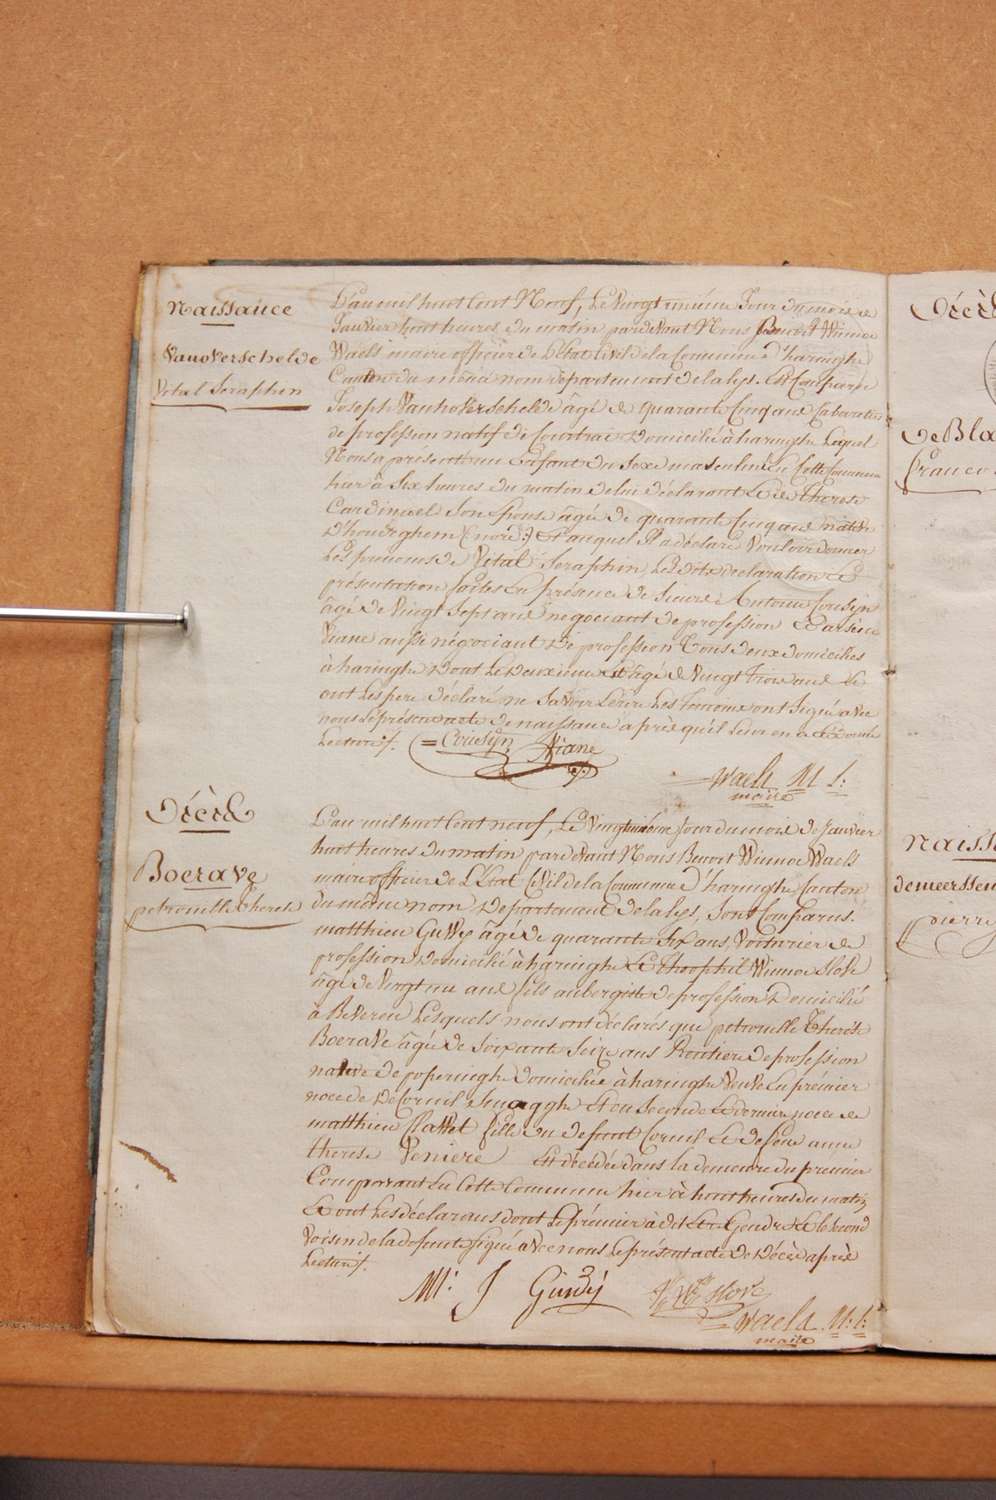 Naissance
Vanoverschelde
Vital Seraphin
L'an mil huit Cent Neuf, Le Vingt unième Jour du mois de
Janvier huit heures du matin pardevant Nous Benoit Winnoc
Waels maire officier de L'Etat Civil de la Commune d'haringhe
Canton du même nom département de la lys. Est Comparu
Joseph Vanhoverschelde âgé de quarante Cinq ans
de profession natif de Courtrai Domicilié à haringhe Lequel
Nous a présenté un Enfant du Sexe masculin né en Cette Commune
hier à Six heures du matin de lui déclarant et de therese
Cardinael Son Epouse âgée de quarante Cinq ans native
D'houdeghem (nord) et auquel Il a déclaré Vouloir donner
Les prenoms de Vital Seraphin Lesdites declaration et
présentation faites En présence de Antoine Cousyn
âgé de Vingt Sept ans négociant de profession et arsène
Viane aussi négociant de profession Tous deux domiciliés
à haringhe Dont Le Deuxième est âgé de Vingt Trois ans Et
ont Les pere déclaré ne Savoir Ecrire Les Temoins ont Signé avec
nous Le présent acte de naissance après qu'il Leur en a été donné
Lecture.
Cousyn Viane
Waels M l:
maire
Décès
Boerave
petronille therese
L'an mil huit Cent neuf, Le Vingtunième Jour du mois de Janvier
huit heures du matin pardevant Nous Benoit Winnoc Waels
maire officier de L'Etat Civil de la Commune d'haringhe Canton
du même nom Département de la lys, Sont Comparus
matthieu âgé de quarante Six ans, Voiturier de
profession Domicilié à haringhe Et Theophil Winnoc Slove
âgé de Vingt un ans fils aubergiste de profession Domicilié
à Beveren Lesquels nous ont déclarés que petronille Therese
Boerave âgée de Soixante Seize ans Rentiere de profession
native de poperinghe domiciliée à haringhe Veuve En prémier
noce de De Corneil Et en Seconde Et derniere noce de
matthieu fille du defunt Corneil Et de feue anne
therese Veniere Est décédée dans la demeure du premier
Comparant En Cette Commune hier à huit heures du matin
Et ont Les déclarans dont Le prémier a dit Etre Gendre Et le Second
Voisin de la defunte Signé avec nous Le présent acte de Décès après
Lecture.
M: J
Slove
Waels M: l:
maire
Décès
De Bla
franco
naiss
demeersseu
pierre